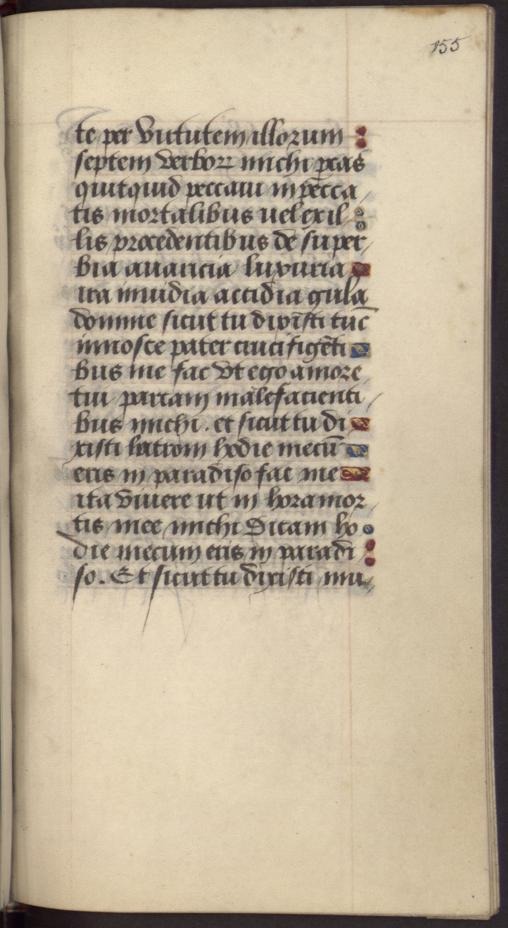 155
te per virtutem illorum
septem verboꝝ michi p̄cas
quitquid peccaui in pecca
tis mortalibus uel ex il
lis procedentibus de super
bia auaricia luxuria
ira inuidia accidia gula
domine sicut tu dixisti tūc
innosce pater crucifigenti
bus me fac vt ego amore
tui parcam malefacienti
bus michi . et sicut tu di
xisti latroni hodie mecū
eris in paradiso fac me
ita viuere ut in hora mor
tis mee michi dicam ho
die mecum eris in paradi
so . Et sicut tu dixisti mu